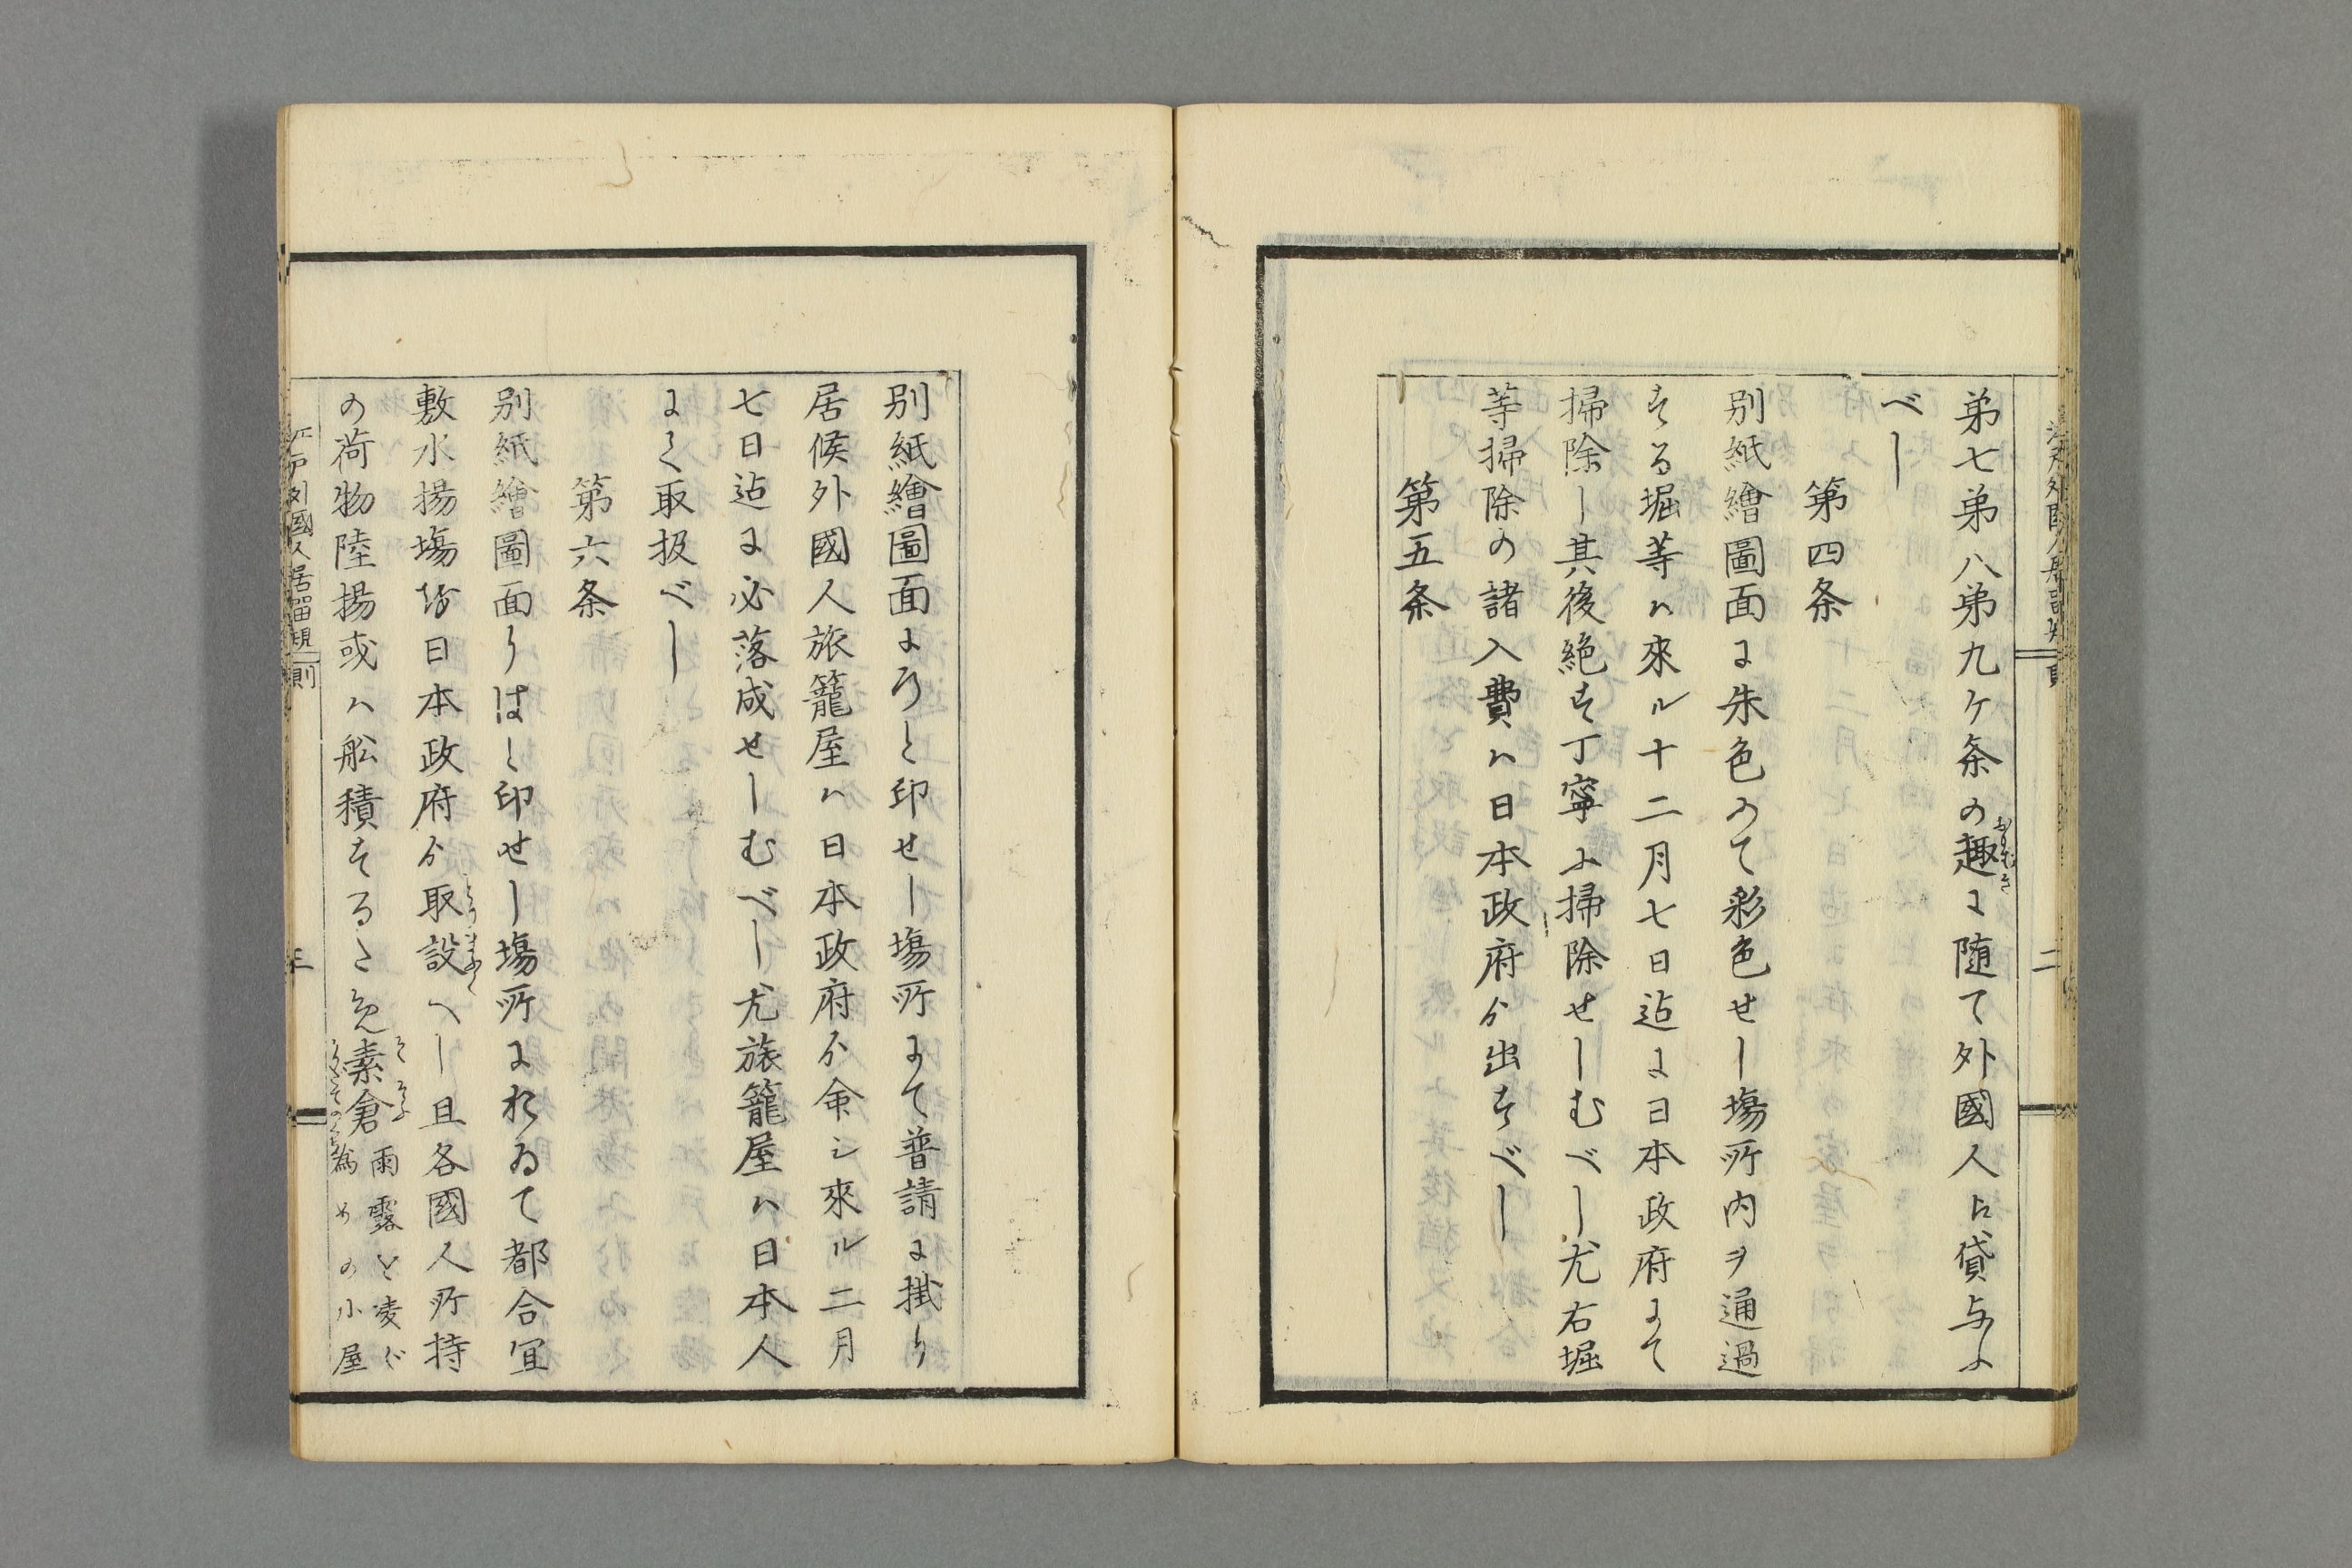 弟七弟八弟九ケ条の趣に随て外國人に貸与ふ
べし
第四条
別紙繪圖面に朱色にて彩色せし塲所内ヲ通過
する堀等ハ來ル十二月七日迠に日本政府にて
掃除し其後絶す丁寧に掃除せしむべし尤右堀
等掃除の諸入費ハ日本政府ゟ出すべし
第五条
別紙繪圖面にろと印せし塲所にて普請に掛り
居候外國人旅籠屋ハ日本政府ゟ命し來ル二月
七日迠に必落成せしむべし尤旅籠屋ハ日本人
にて取扱べし
第六条
別紙繪圖面にはと印せし塲所において都合宜
敷水揚塲を日本政府ゟ取設へし且各國人所持
の荷物陸揚或ハ舩積するため素倉雨露を凌ぐ為めの小屋
江戸外國人居留規則